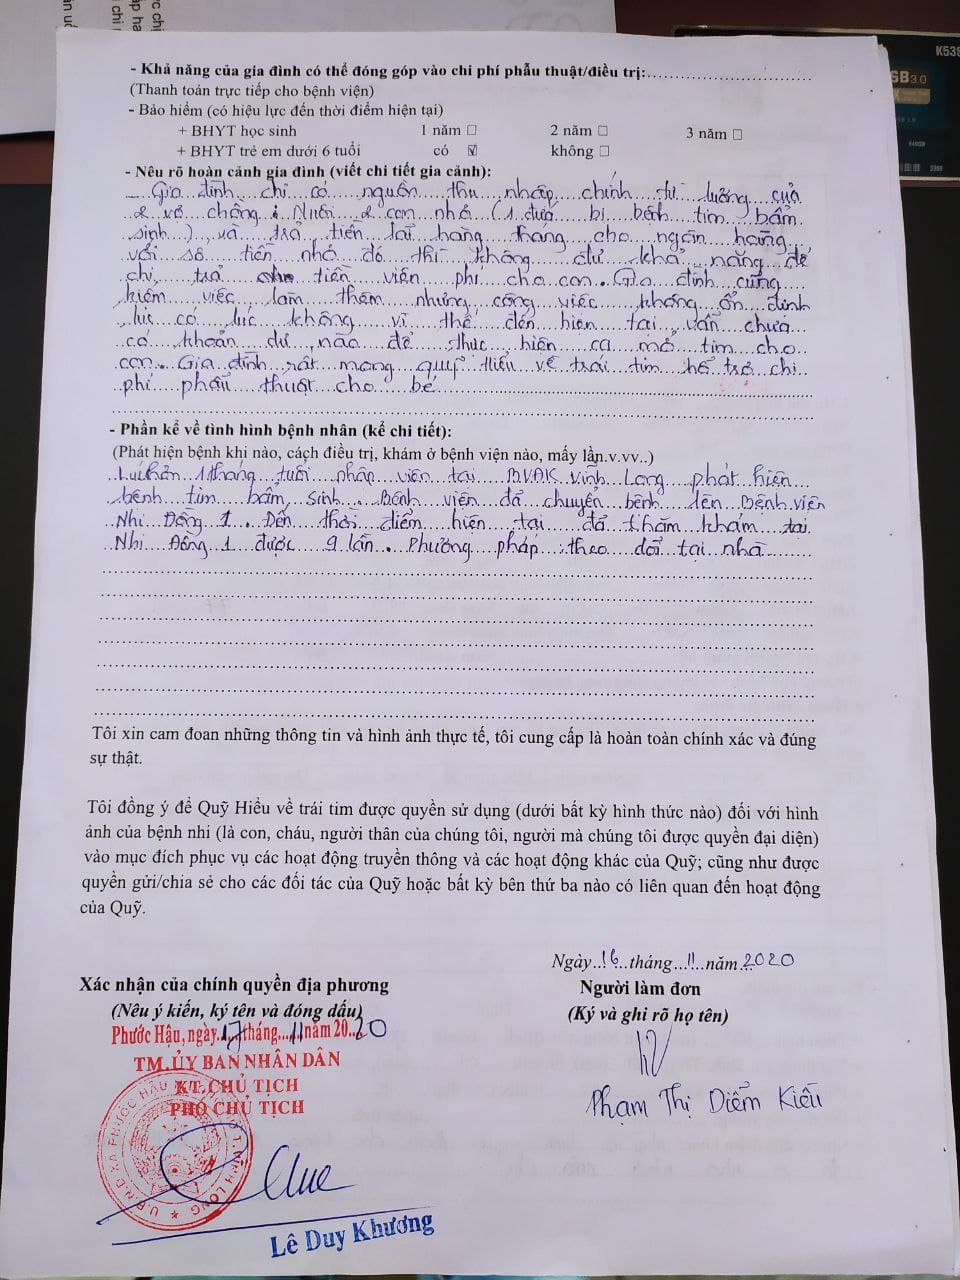 - Khả năng của gia đình có thể đóng góp vào chi phí phẫu thuật/điều trị:
(Thanh toán trực tiếp cho bệnh viện)
- Bảo hiểm (có hiệu lực đến thời điểm hiện tại)
+ BHYT học sinh 1 năm ☐ 2 năm ☐ 3 năm ☐
+ BHYT trẻ em dưới 6 tuổi có ☑ không ☐
- Nêu rõ hoàn cảnh gia đình (viết chi tiết gia cảnh):
Gia đình chỉ có nguồn thu nhập chính từ lương của
2 vợ chồng. Nuôi 2 con nhỏ (1 đứa bị bệnh tim bẩm
sinh) và trả tiền lãi hàng tháng cho ngân hàng
với số tiền nhỏ đó thì không đủ khả năng để
chi trả cho tiền viện phí cho con. Gia đình cũng
kiếm việc làm thêm nhưng công việc không ổn định
lúc có lúc không vì thế đến hiện tại vẫn chưa
có khoản dư nào để thực hiện ca mổ tim cho
con. Gia đình rất mong quỹ Hiểu về trái tim hổ trợ chi
phí phẩu thuật cho bé
- Phần kể về tình hình bệnh nhân (kể chi tiết):
(Phát hiện bệnh khi nào, cách điều trị, khám ở bệnh viện nào, mấy lần.v.vv..)
Lúc hơn 1 tháng tuổi nhập viện tại BVĐK Vĩnh Long phát hiện
bệnh tim bẩm sinh. Bệnh viện đã chuyển bệnh lên Bệnh viện
Nhi Đồng 1. Đến thời điểm hiện tại đã thăm khám tại
Nhi Đồng 1 được 9 lần. Phương pháp theo dõi tại nhà
Tôi xin cam đoan những thông tin và hình ảnh thực tế, tôi cung cấp là hoàn toàn chính xác và đúng
sự thật.
Tôi đồng ý để Quỹ Hiểu về trái tim được quyền sử dụng (dưới bất kỳ hình thức nào) đối với hình
ảnh của bệnh nhi (là con, cháu, người thân của chúng tôi, người mà chúng tôi được quyền đại diện)
vào mục đích phục vụ các hoạt động truyền thông và các hoạt động khác của Quỹ; cũng như được
quyền gửi/chia sẻ cho các đối tác của Quỹ hoặc bất kỳ bên thứ ba nào có liên quan đến hoạt động
của Quỹ.
Ngày 16 tháng 11 năm 2020
Xác nhận của chính quyền địa phương
Người làm đơn
(Nêu ý kiến, ký tên và đóng dấu)
(Ký và ghi rõ họ tên)
Phước Hậu, ngày 17 tháng 11 năm 2020
TM. ỦY BAN NHÂN DÂN
KT. CHỦ TỊCH
PHÓ CHỦ TỊCH
Phạm Thị Diểm Kiều
Lê Duy Khương